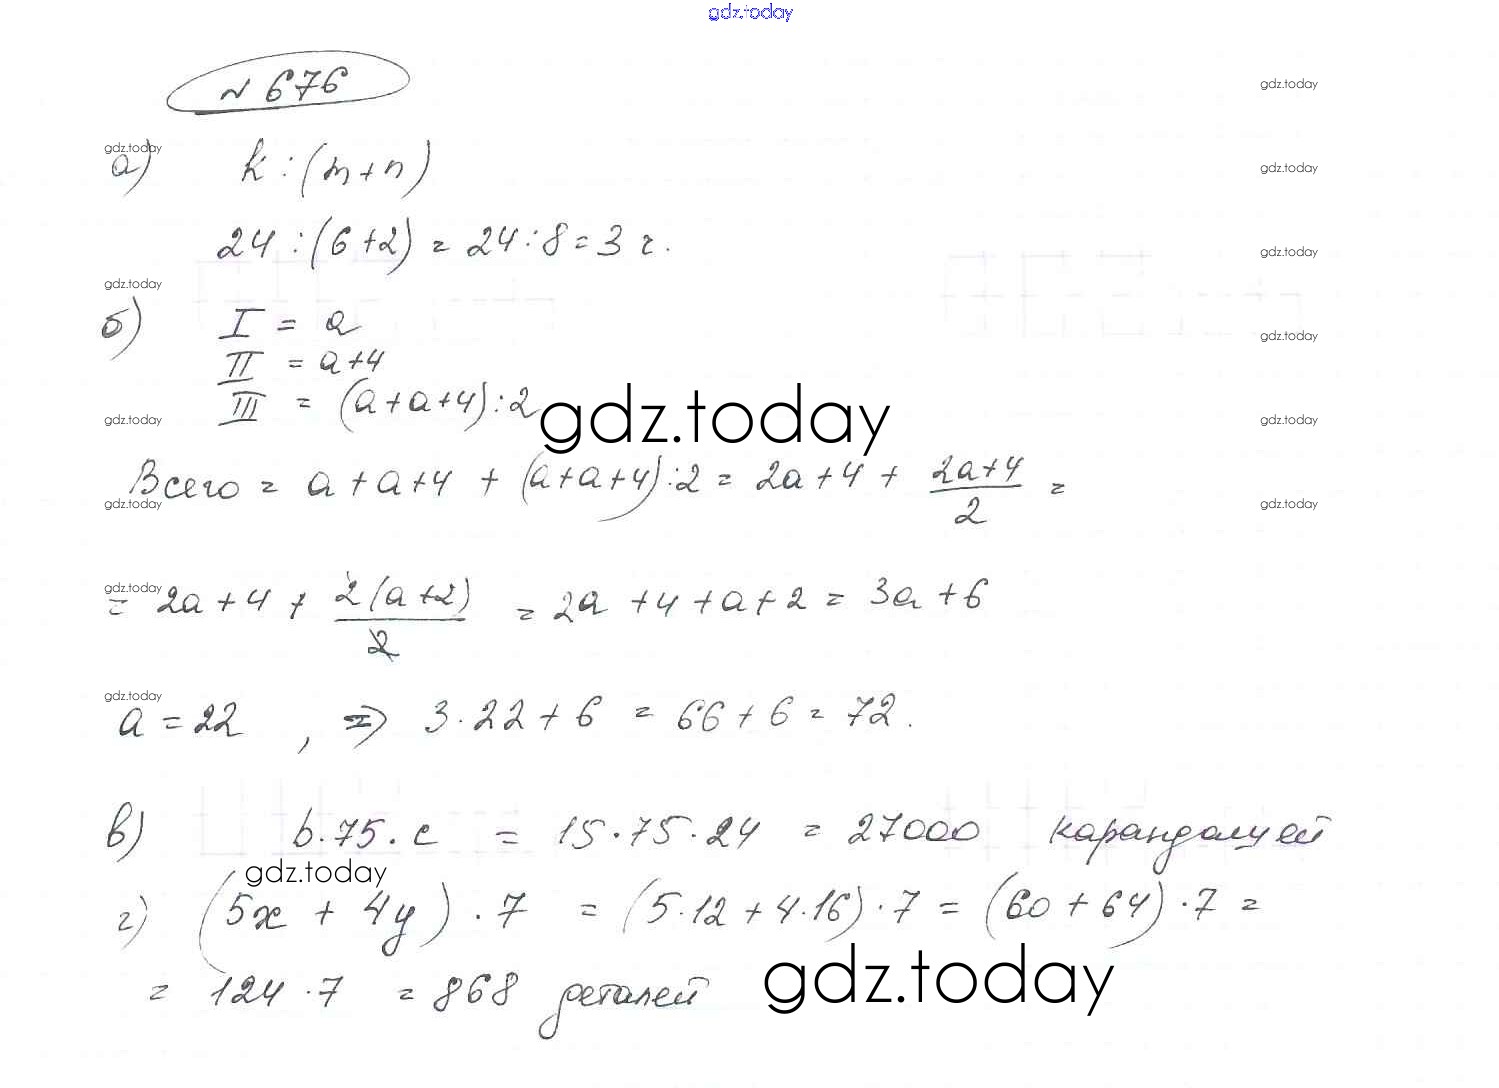 gdz.today
№ 676
gdz.today
gdz.today
а) k : (m+n)
gdz.today
24 : (6+2) = 24 : 8 = 3 г.
gdz.today
gdz.today
б) I = a
gdz.today
II = a+4
III = (a+a+4) : 2
gdz.today
gdz.today
gdz.today
Всего = a + a+4 + (a+a+4) : 2 = 2a+4 + \frac{2a+4}{2} =
gdz.today
gdz.today
gdz.today
= 2a+4 + \frac{2(a+2)}{2} = 2a+4+a+2 = 3a+6
gdz.today
a = 22 , ⇒ 3·22+6 = 66+6 = 72.
в) b·75·c = 15·75·24 = 27000 карандашей
gdz.today
г) (5x + 4y)·7 = (5·12+4·16)·7 = (60+64)·7 =
= 124·7 = 868 деталей
gdz.today